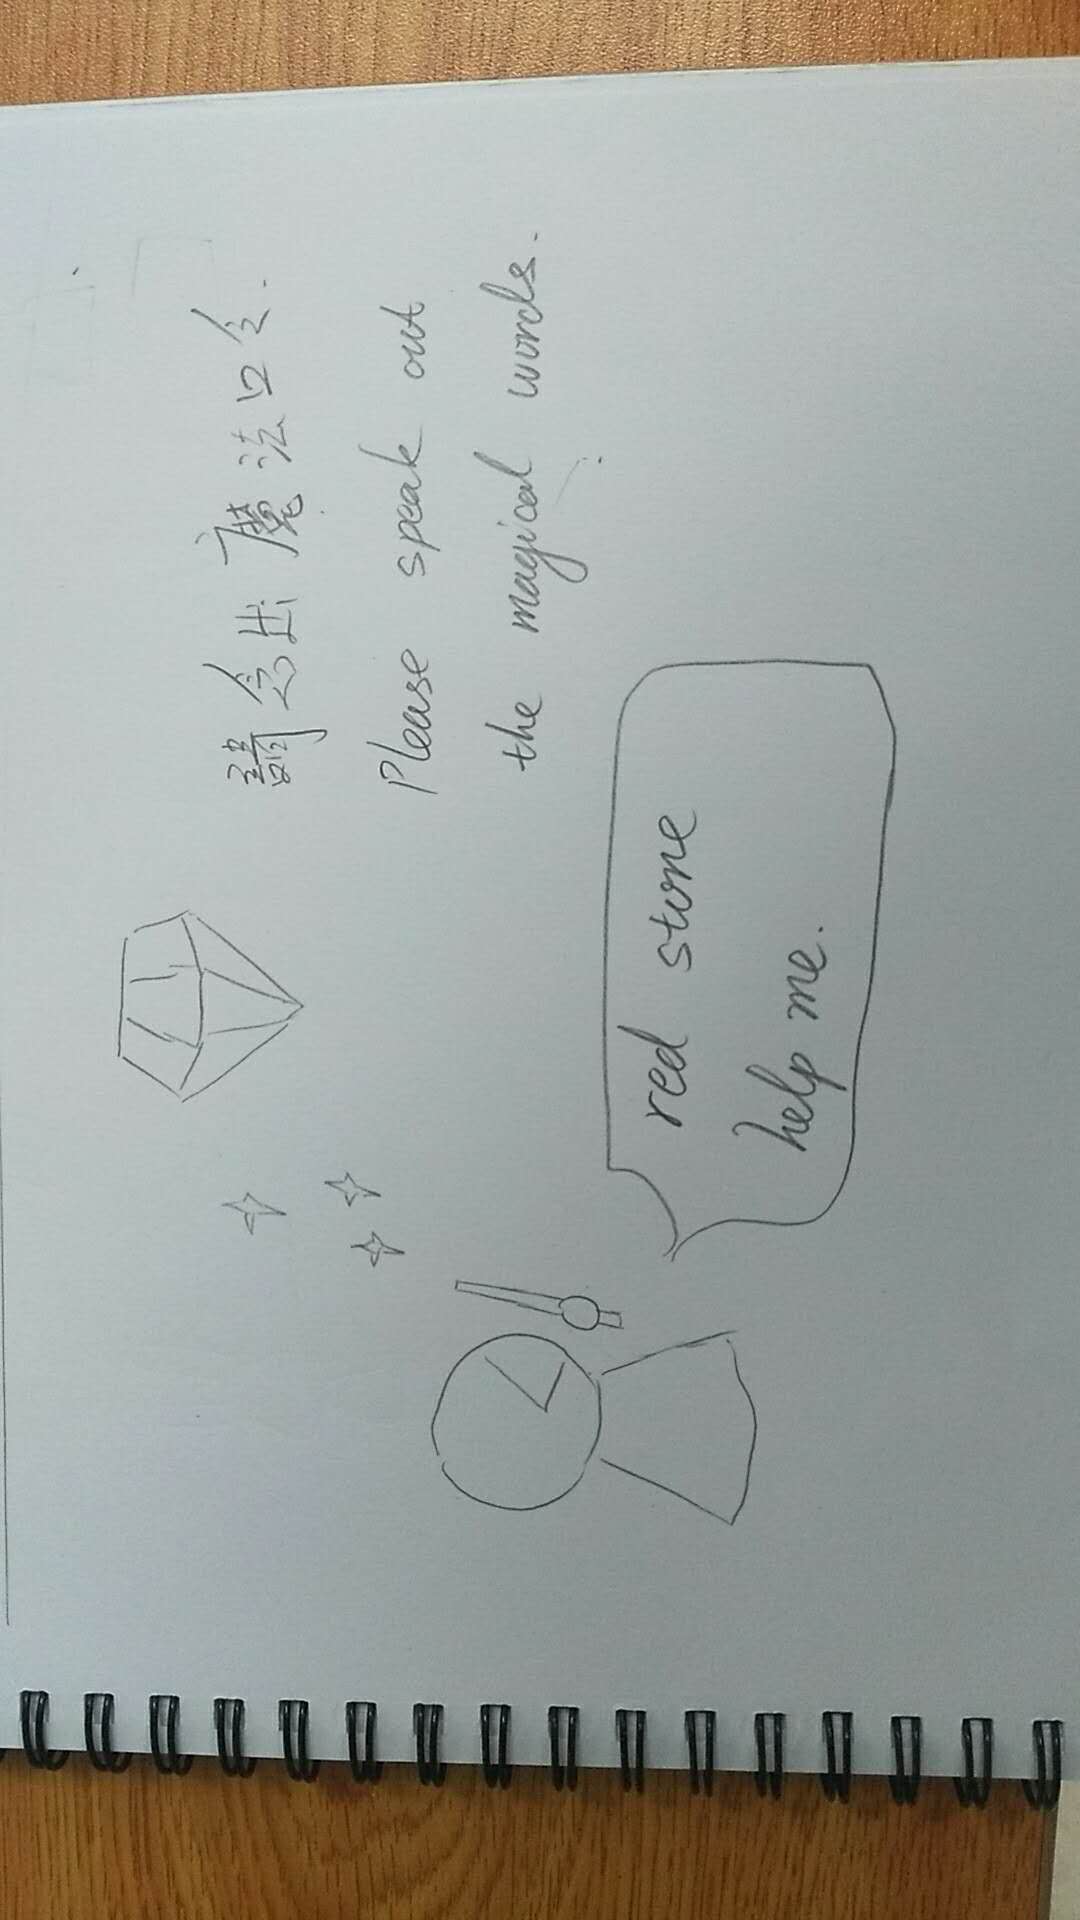 請念出魔法口令.
Please speak out
the magical words.
red stone
help me.